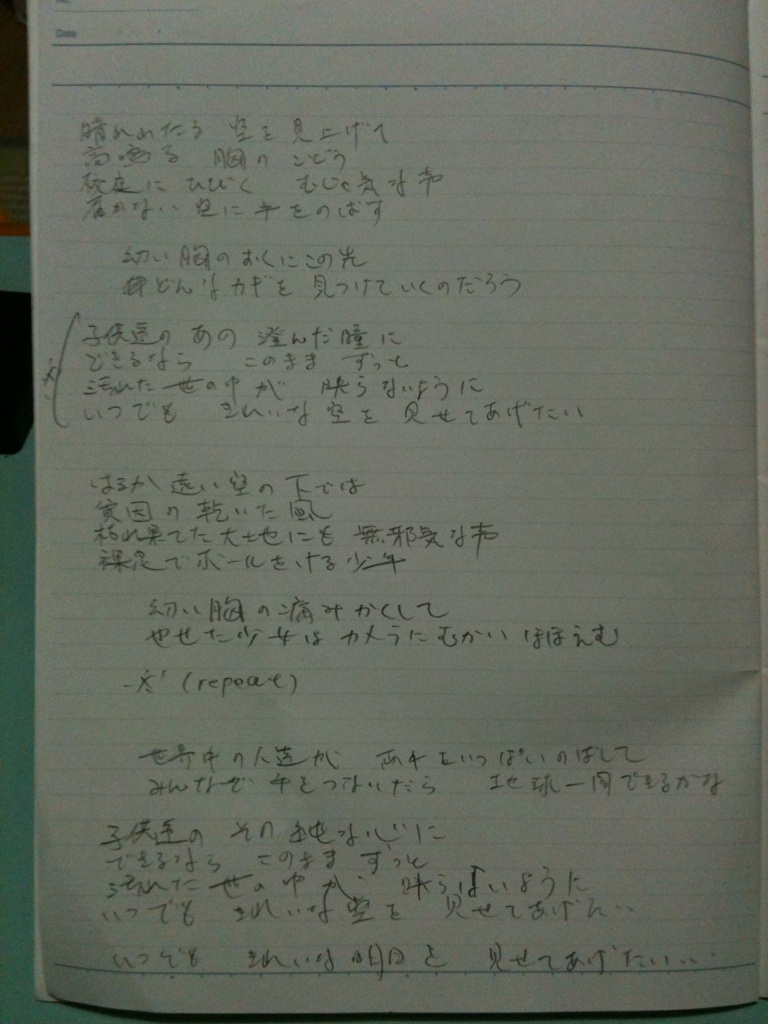 Date
晴れわたる 空を見上げて
高鳴る 胸の こどう
校庭に ひびく むじゃ気な声
届かない 空に 手をのばす
幼い胸のおくに この先
どんなカギを 見つけていくのだろう
子供達の あの 澄んだ瞳に
できるなら このまま ずっと
汚れた 世の中が 映らないように
いつでも きれいな 空を 見せてあげたい
はるか 遠い空の下では
貧困の 乾いた風
枯れ果てた大地にも 無邪気な声
裸足でボールをける少年
幼い胸の痛みかくして
やせた少女は カメラにむかい ほほえむ
(repeat)
世界中の人達が 両手をいっぱいのばして
みんなで 手をつないだら 地球一周できるかな
子供達の その 純な心に
できるなら このまま ずっと
汚れた 世の中が 映らないように
いつでも きれいな空を 見せてあげたい‥
いつでも きれいな明日を 見せてあげたい‥